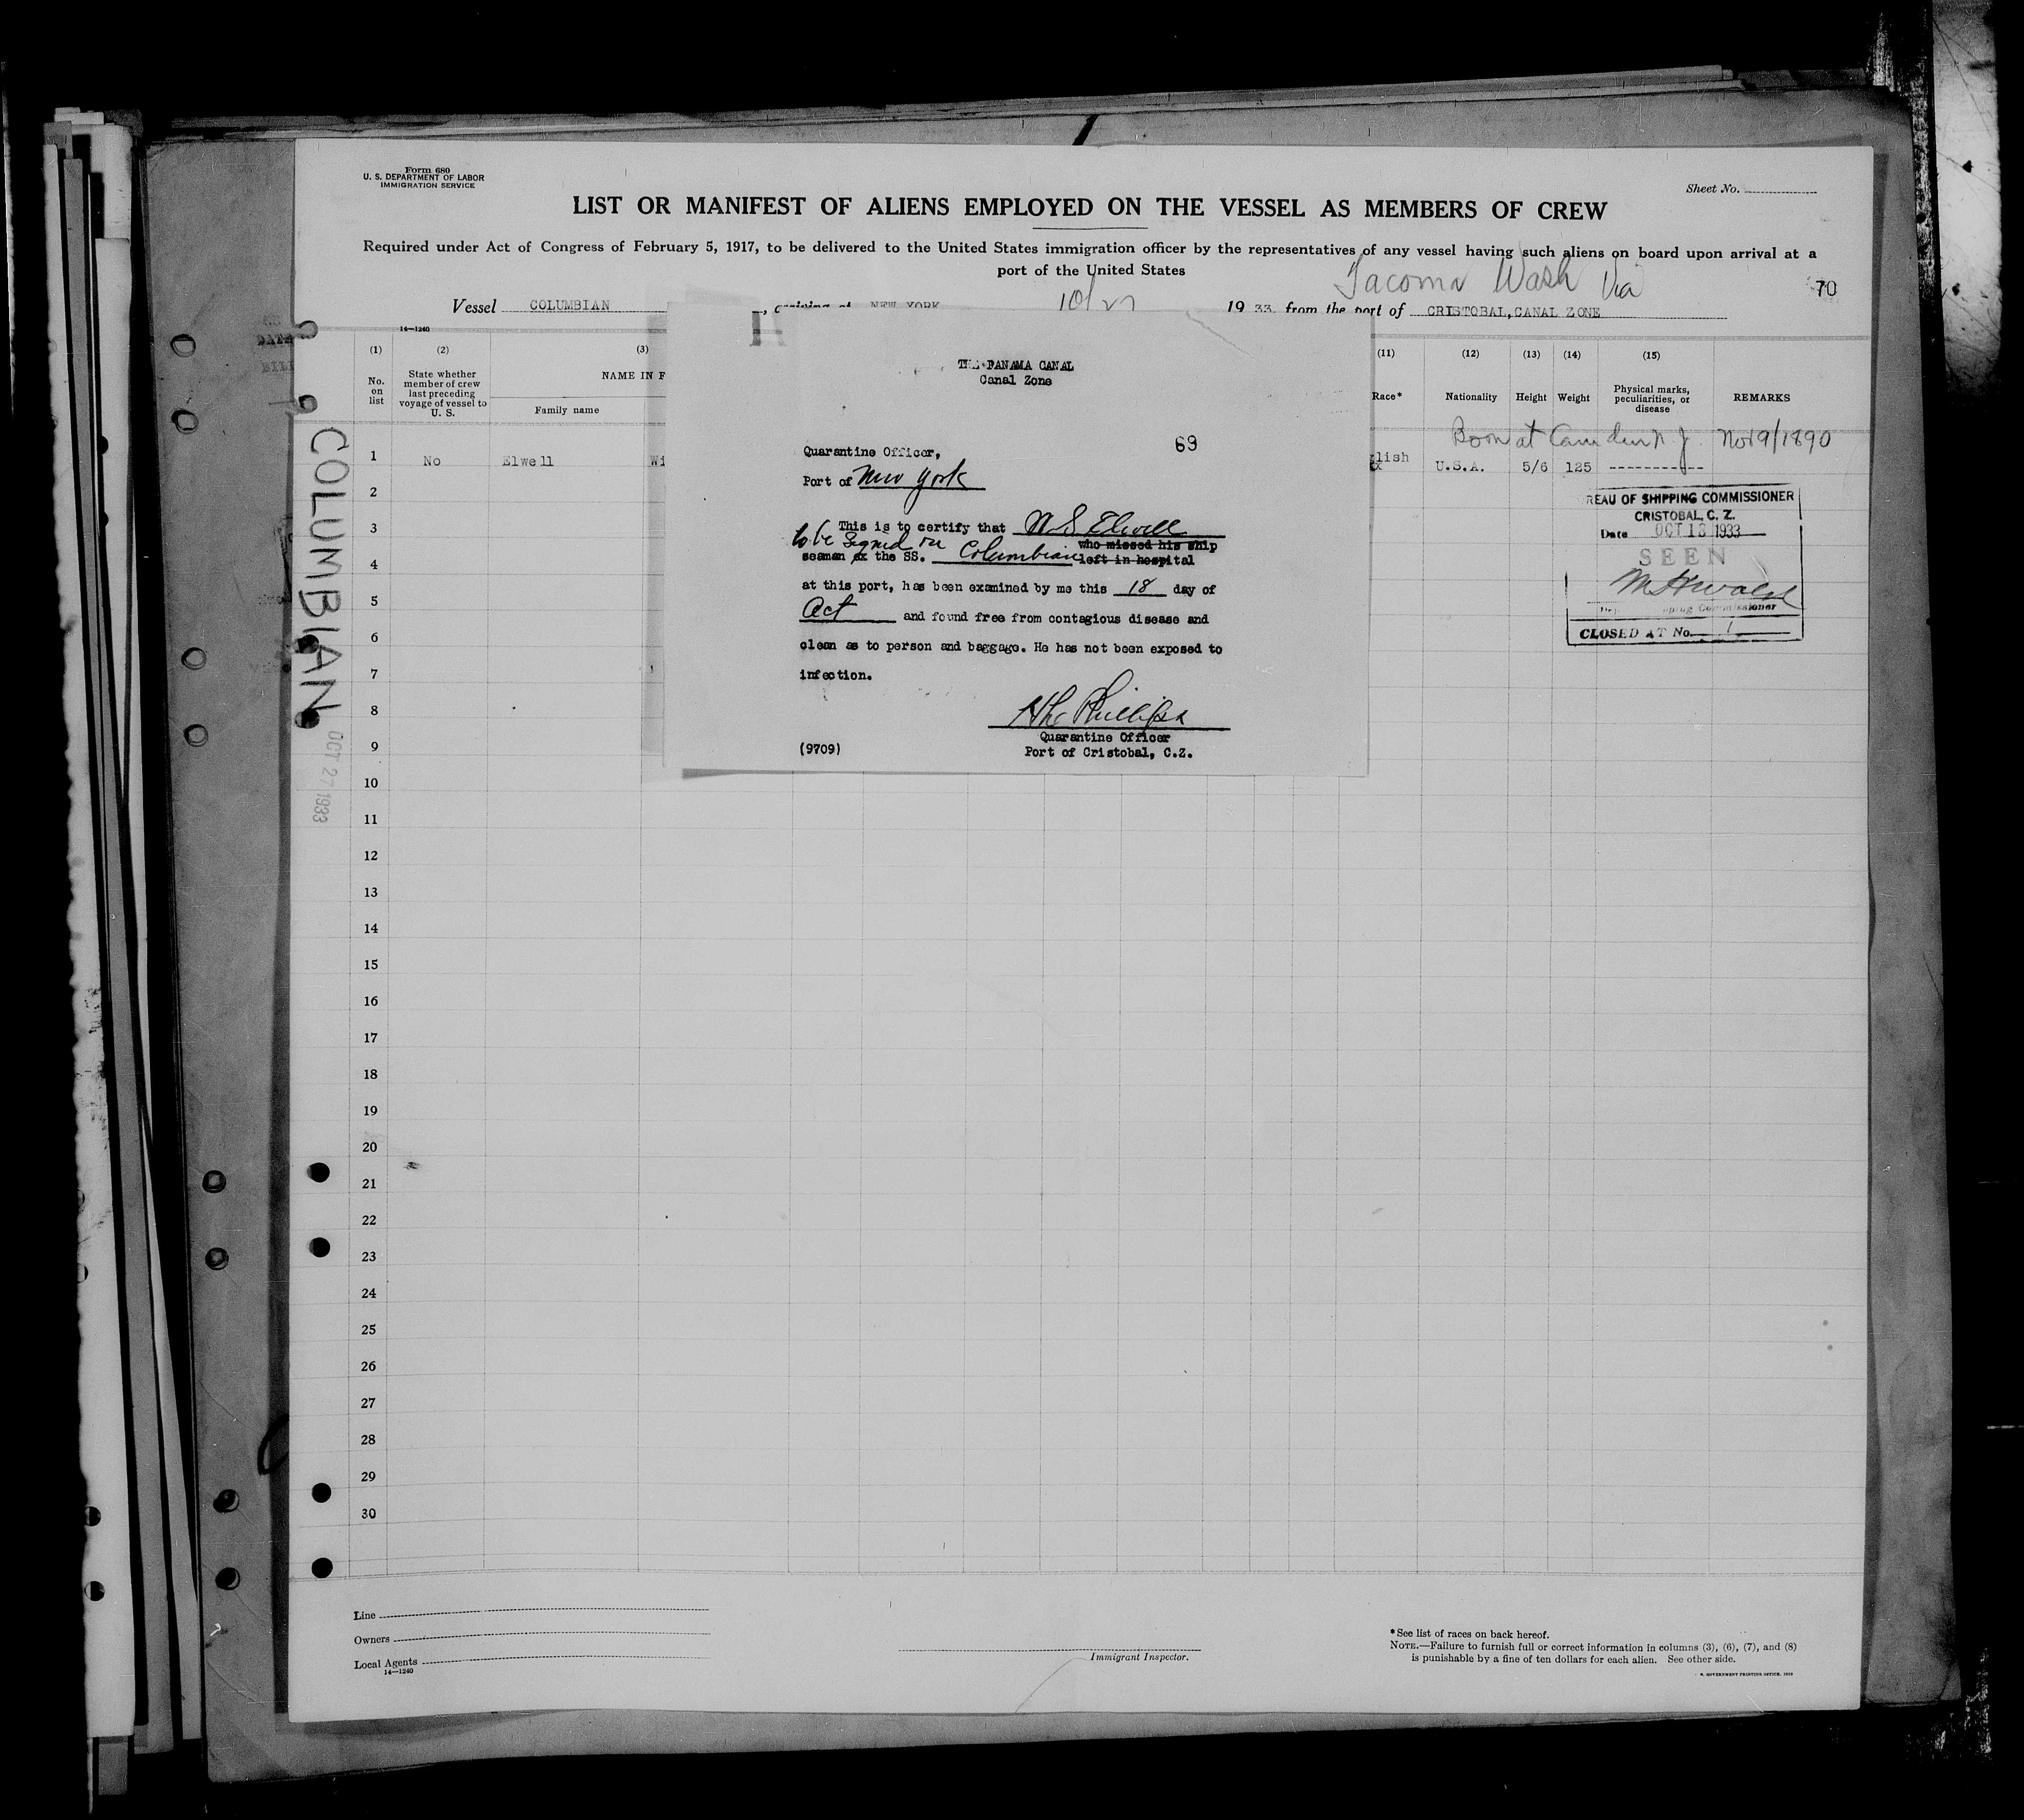 Form 680
U. S. DEPARTMENT OF LABOR
IMMIGRATION SERVICE
Sheet No.
LIST OR MANIFEST OF ALIENS EMPLOYED ON THE VESSEL AS MEMBERS OF CREW
Required under Act of Congress of February 5, 1917, to be delivered to the United States immigration officer by the representatives of any vessel having such aliens on board upon arrival at a
port of the United States
Tacoma Wash Via
70
Vessel COLUMBIAN , arriving at NEW YORK 10/27 1933 from the port of CRISTOBAL,CANAL ZONE
14—1240
(1) (2) (3) (11) (12) (13) (14) (15)
No. on list
State whether member of crew last preceding voyage of vessel to U. S.
NAME IN F
Family name
Race*
Nationality
Height
Weight
Physical marks, peculiarities, or disease
REMARKS
Born at Camden N. J. Nov 9/1890
1 No Elwell Wi glish U.S.A. 5/6 125 -----------
2
3
4
5
6
7
8
9
10
11
12
13
14
15
16
17
18
19
20
21
22
23
24
25
26
27
28
29
30
COLUMBIAN
OCT 27 1933
THE PANAMA CANAL
Canal Zone
69
Quarantine Officer,
Port of New York
This is to certify that W S Elwell
to be signed on
who missed his ship
seaman ex the SS. Columbian left in hospital
at this port, has been examined by me this 18 day of
Oct and found free from contagious disease and
clean as to person and baggage. He has not been exposed to
infection.
Phillips
Quarantine Officer
Port of Cristobal, C.Z.
(9709)
REAU OF SHIPPING COMMISSIONER
CRISTOBAL, C. Z.
Date OCT 18 1933
SEEN
Commissioner
CLOSED AT No. 1
Line
Owners
Local Agents
14—1240
Immigrant Inspector.
*See list of races on back hereof.
NOTE.—Failure to furnish full or correct information in columns (3), (6), (7), and (8)
is punishable by a fine of ten dollars for each alien. See other side.